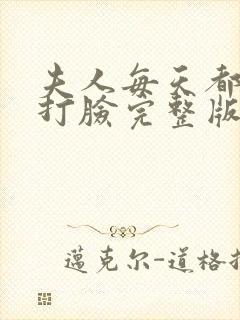 夫人每天都
打臉完整版
邁克尔-道格拉